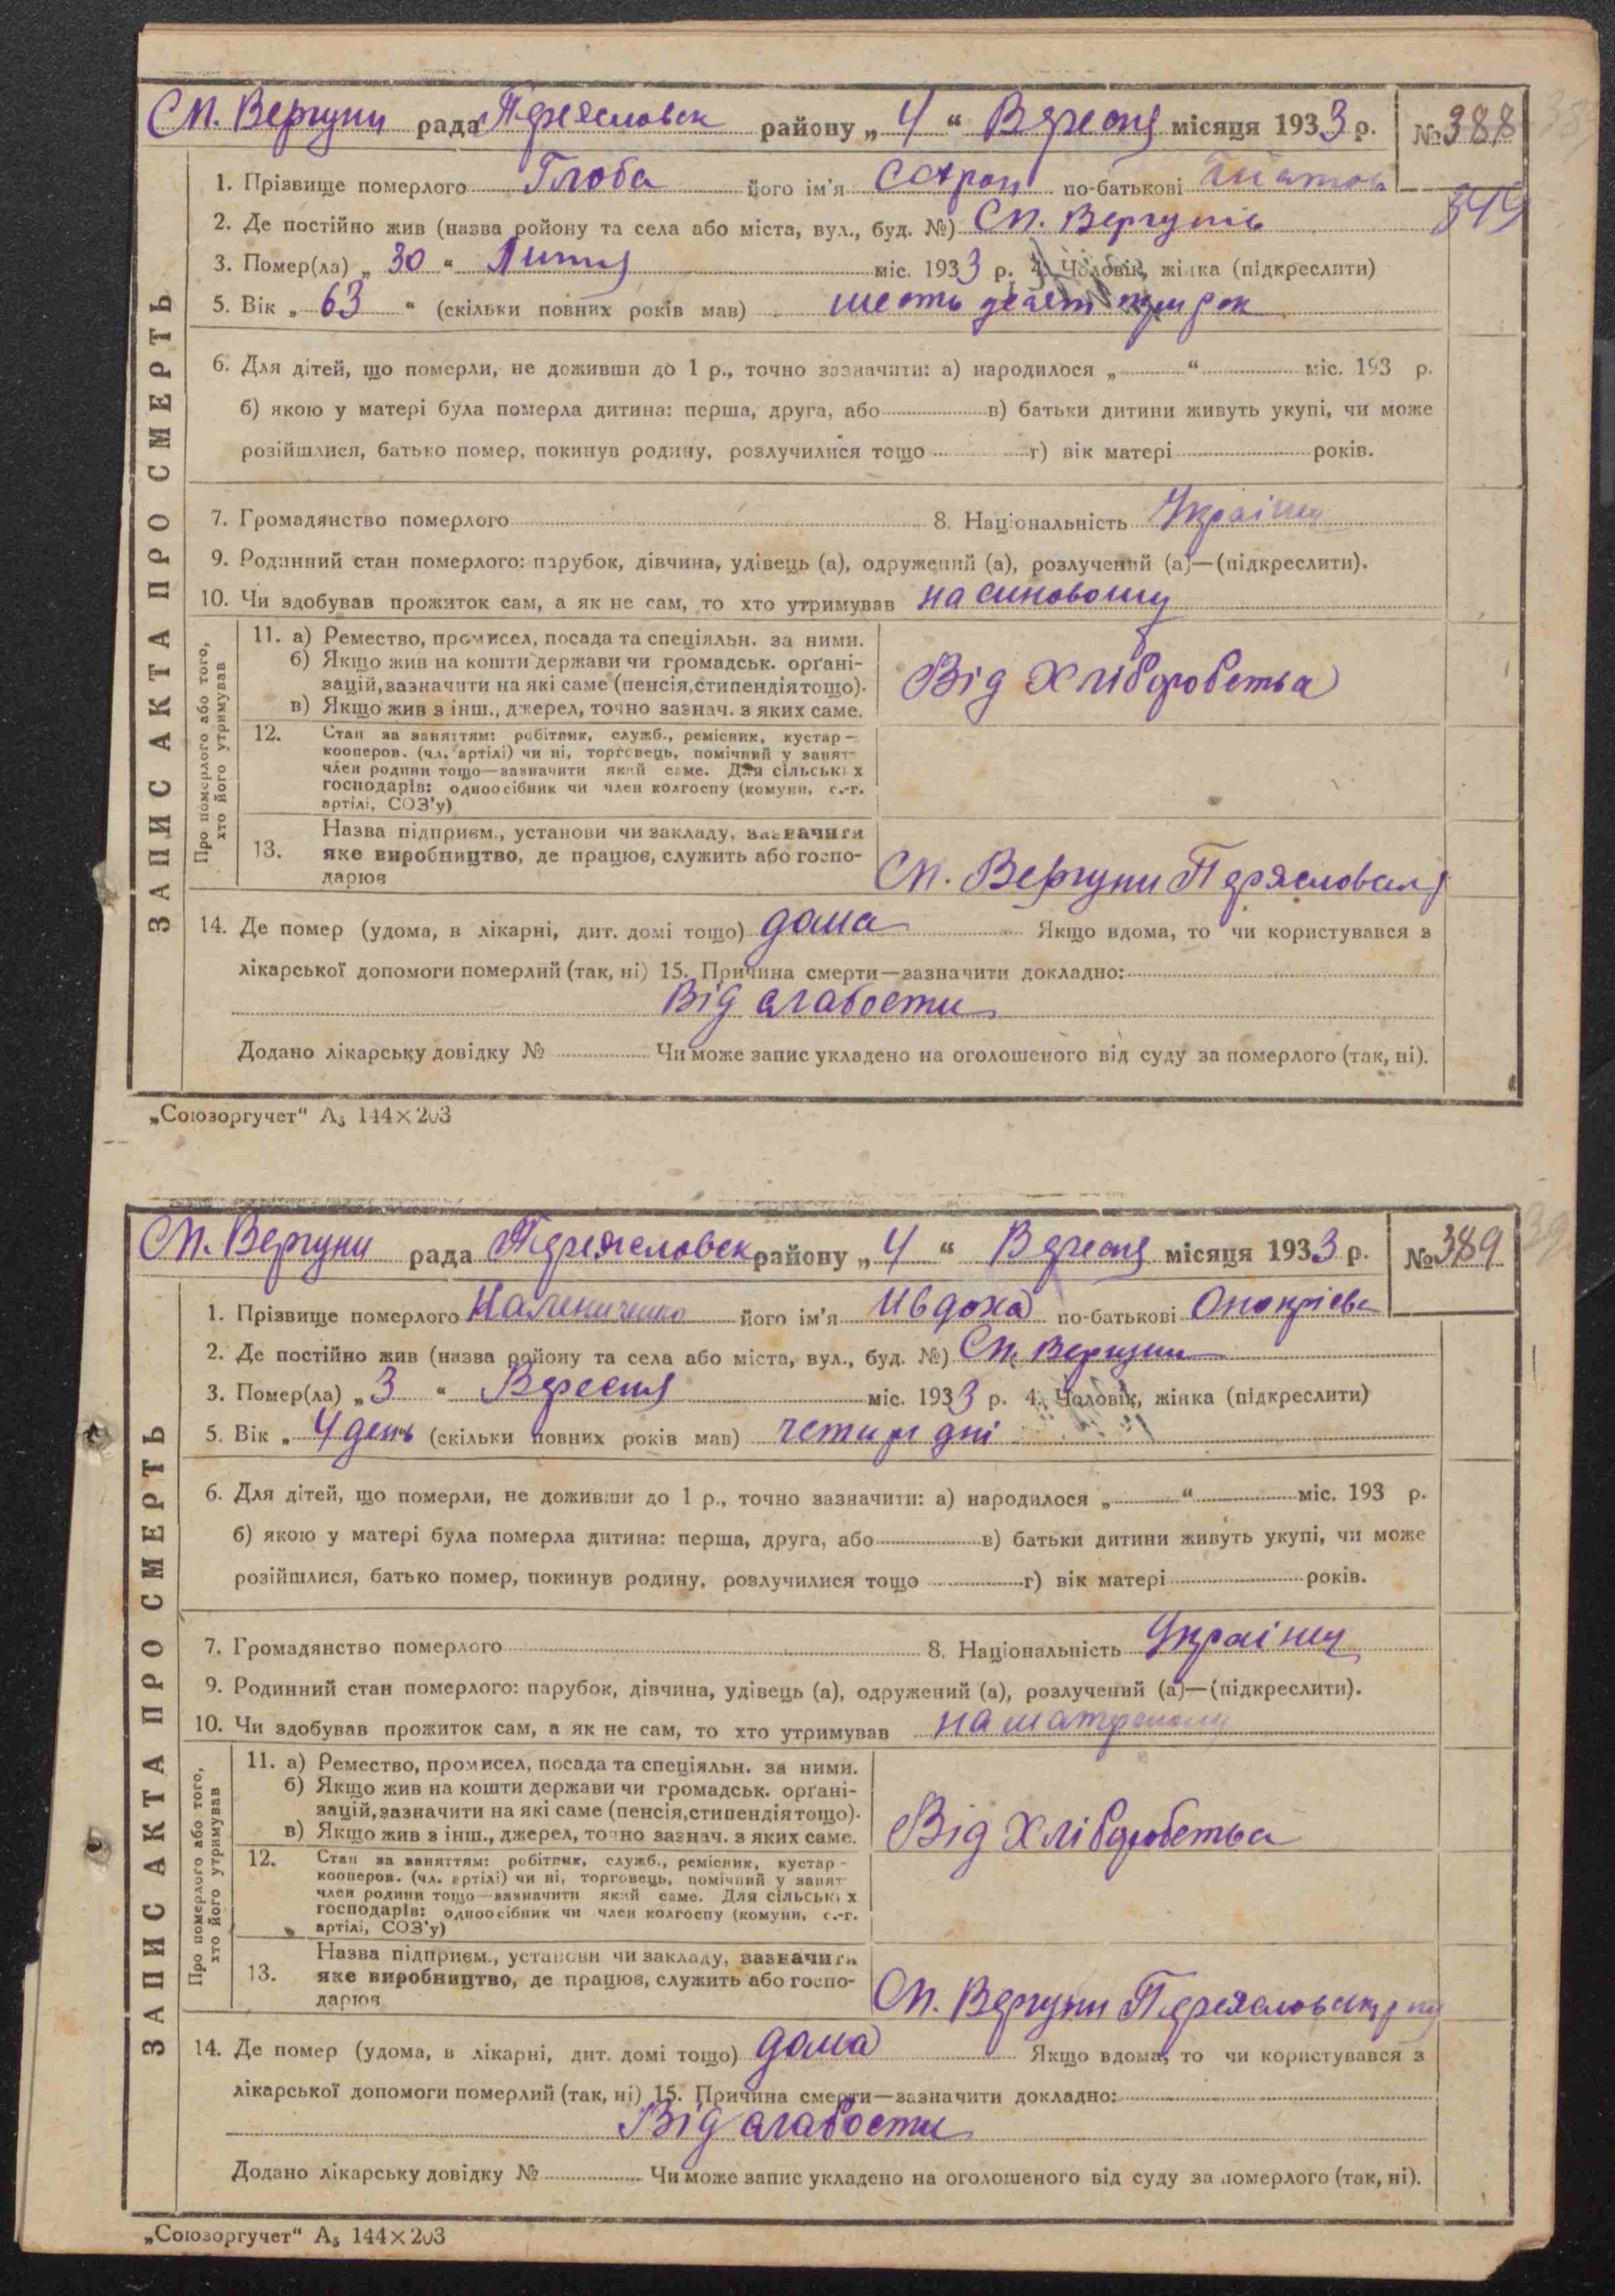 См. Вергуни рада Переясловск району „ 4 “ Вересня місяця 1933 р. № 388
1. Прізвище померлого Глоба його ім'я по-батькові
2. Де постійно жив (назва ройону та села або міста, вул., буд. №) См. Вергунів
3. Помер(ла) „ 30 “ Липня міс. 1933 р. 4. Чоловік, жінка (підкреслити)
5. Вік „ 63 “ (скільки повних років мав) шесть десят три рок
6. Для дітей, що померли, не доживши до 1 р., точно зазначити: а) народилося „ “ міс. 193 р.
б) якою у матері була померла дитина: перша, друга, або в) батьки дитини живуть укупі, чи може
розійшлися, батько помер, покинув родину, розлучилися тощо г) вік матері років.
7. Громадянство померлого 8. Національність Україн
9. Родинний стан померлого: парубок, дівчина, удівець (а), одружений (а), розлучений (а)—(підкреслити).
10. Чи здобував прожиток сам, а як не сам, то хто утримував на синовому
ЗАПИС АКТА ПРО СМЕРТЬ
Про померлого або того, хто його утримував
11. а) Ремество, промисел, посада та спеціяльн. за ними.
б) Якщо жив на кошти держави чи громадськ. орґані-
зацій, зазначити на які саме (пенсія, стипендія тощо).
в) Якщо жив з інш., джерел, точно зазнач. з яких саме.
Від Хліборобства
12. Стан за заняттям: робітник, служб., ремісник, кустар –
кооперов. (чл. артілі) чи ні, торговець, помічний у занят-
член родини тощо—зазначити який саме. Для сільських
господарів: одноосібник чи член колгоспу (комуни, с.-г.
артілі, СОЗ'у)
13. Назва підприєм., установи чи закладу, зазначити
яке виробництво, де працює, служить або госпо-
дарює
См. Вергуни Переясловск
14. Де помер (удома, в лікарні, дит. домі тощо) дома Якщо вдома, то чи користувався з
лікарської допомоги померлий (так, ні) 15. Причина смерти—зазначити докладно:
Від слабости
Додано лікарську довідку № Чи може запис укладено на оголошеного від суду за померлого (так, ні).
„Союзоргучет“ А₅ 144×203
См. Вергуни рада Переясловск району „ 4 “ Вересня місяця 1933 р. № 389
1. Прізвище померлого Калениченко його ім'я Ивдоха по-батькові Онопріева
2. Де постійно жив (назва ройону та села або міста, вул., буд. №) См. Вергуни
3. Помер(ла) „ 3 “ Вересня міс. 1933 р. 4. Чоловік, жінка (підкреслити)
5. Вік „ 4 день (скільки повних років мав) четири дні
6. Для дітей, що померли, не доживши до 1 р., точно зазначити: а) народилося „ “ міс. 193 р.
б) якою у матері була померла дитина: перша, друга, або в) батьки дитини живуть укупі, чи може
розійшлися, батько помер, покинув родину, розлучилися тощо г) вік матері років.
7. Громадянство померлого 8. Національність Україну
9. Родинний стан померлого: парубок, дівчина, удівець (а), одружений (а), розлучений (а)—(підкреслити).
10. Чи здобував прожиток сам, а як не сам, то хто утримував на
ЗАПИС АКТА ПРО СМЕРТЬ
Про померлого або того, хто його утримував
11. а) Ремество, промисел, посада та спеціяльн. за ними.
б) Якщо жив на кошти держави чи громадськ. орґані-
зацій, зазначити на які саме (пенсія, стипендія тощо).
в) Якщо жив з інш., джерел, точно зазнач. з яких саме.
Від Хліборобства
12. Стан за заняттям: робітник, служб., ремісник, кустар –
кооперов. (чл. артілі) чи ні, торговець, помічний у занят-
член родини тощо—зазначити який саме. Для сільських
господарів: одноосібник чи член колгоспу (комуни, с.-г.
артілі, СОЗ'у)
13. Назва підприєм., установи чи закладу, зазначити
яке виробництво, де працює, служить або госпо-
дарює
См. Вергуни
14. Де помер (удома, в лікарні, дит. домі тощо) дома Якщо вдома, то чи користувався з
лікарської допомоги померлий (так, ні) 15. Причина смерти—зазначити докладно:
Від слабости
Додано лікарську довідку № Чи може запис укладено на оголошеного від суду за померлого (так, ні).
„Союзоргучет“ А₅ 144×203